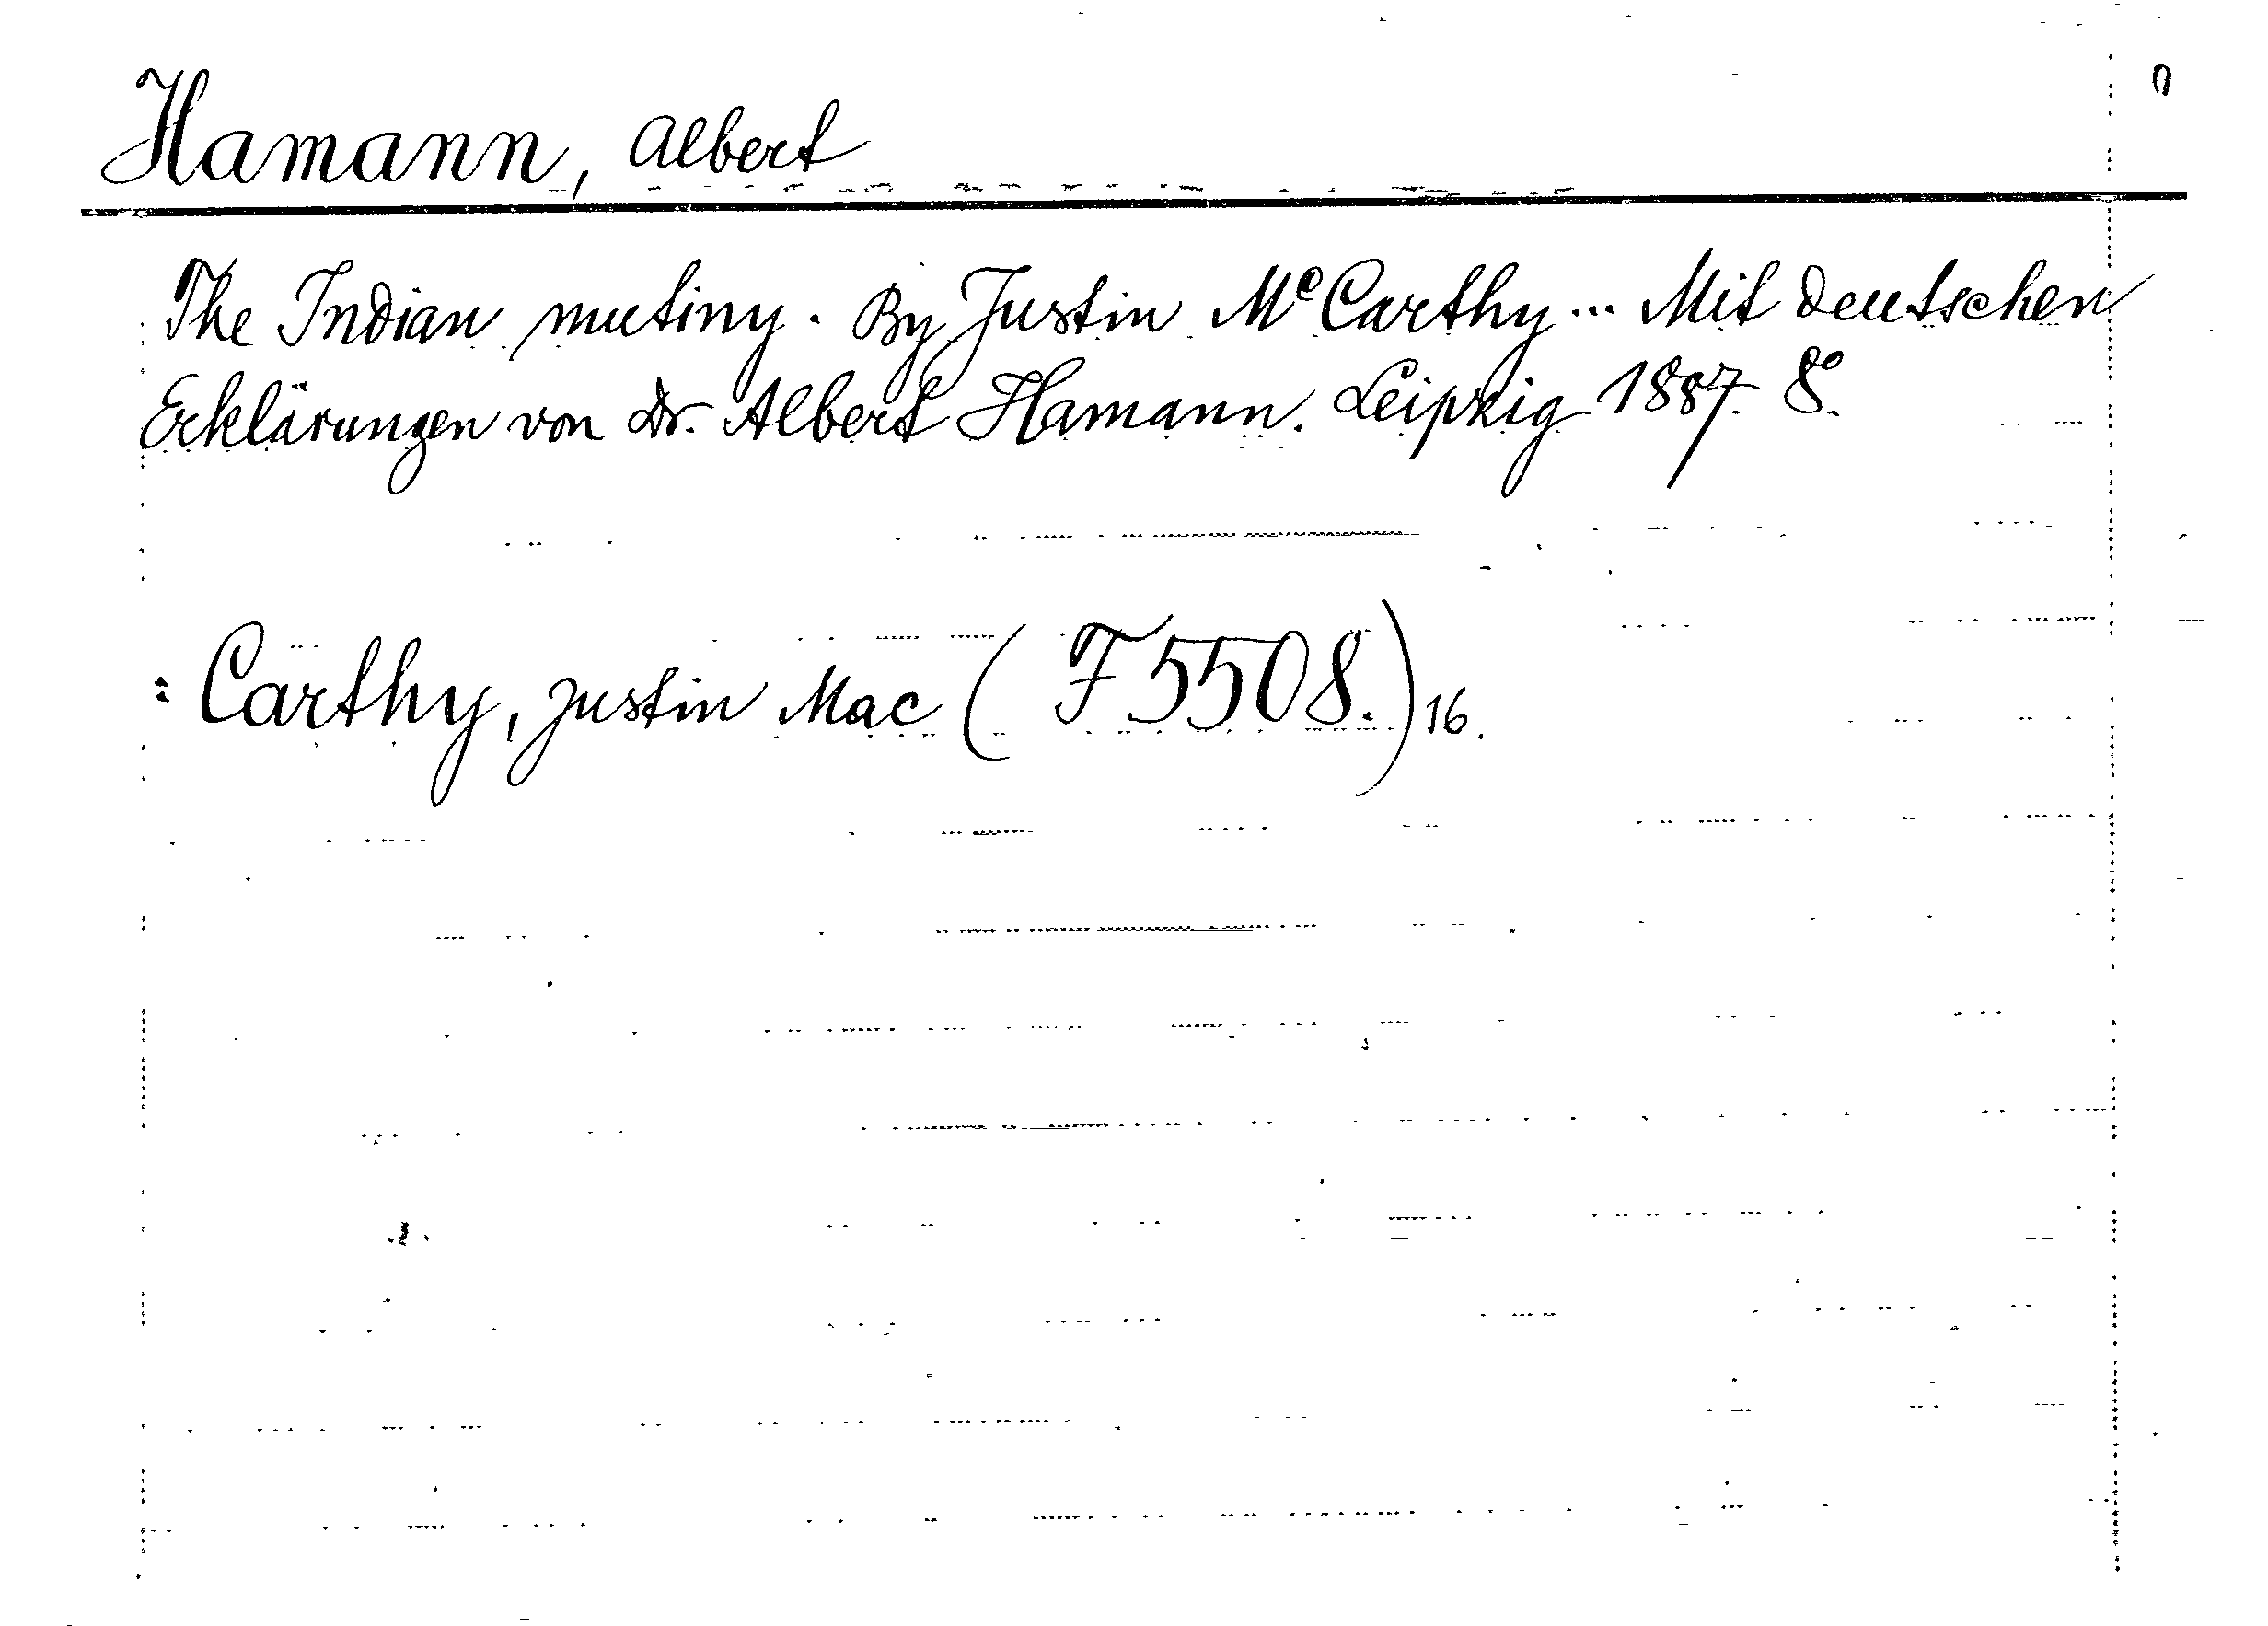 Hamann, Albert
The Indian mutiny. By Justin Mc Carthy... Mit deutschen
Erklärungen von Dr. Albert Hamann. Leipzig 1887. 8º.
: Carthy, Justin Mac (F 5508.) 16.